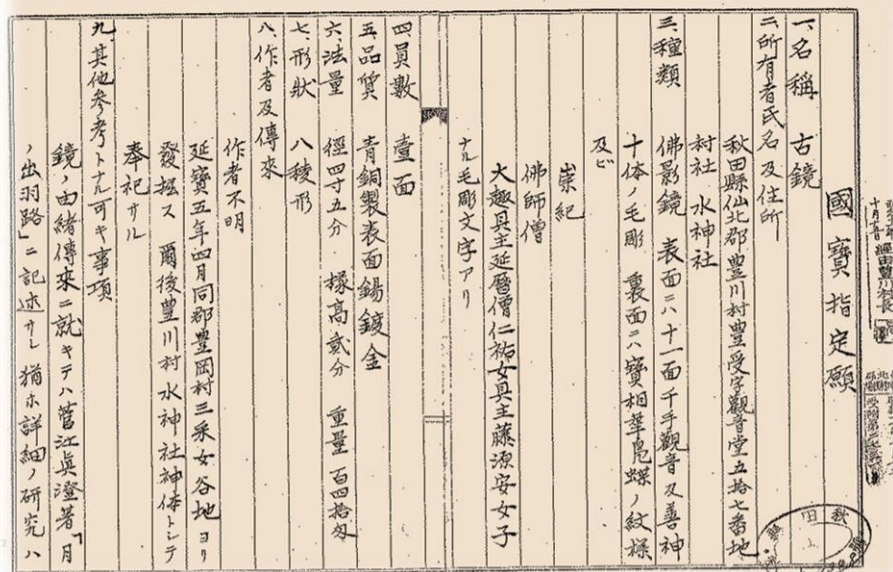 國寳指定願
一、名稱 古鏡
二、所有者氏名及住所
秋田縣仙北郡豊川村豊受字觀音堂五拾七番地
村社 水神社
三、種類 佛影鏡 表面ニハ十一面千手觀音及善神
十体ノ毛彫 裏面ニハ寳相華鳧蝶ノ紋様
及ビ
崇紀
佛師僧
大趣具主延暦僧仁祐女具主藤源安女子
ナル毛彫文字アリ
四、員數 壹面
五、品質 青銅製表面錫鍍金
六、法量 徑四寸五分 椽高貳分 重量 百四拾匁
七、形狀 八稜形
八、作者及傳來
作者不明
延寳五年四月同郡豊岡村三采女谷地ヨリ
發掘ス 爾後豊川村水神社神体トシテ
奉祀サル
九、其他參考トナル可キ事項
鏡ノ由緒傳來ニ就キテハ菅江眞澄著「月
ノ出羽路」ニ記述サレ猶ホ詳細ノ研究ハ